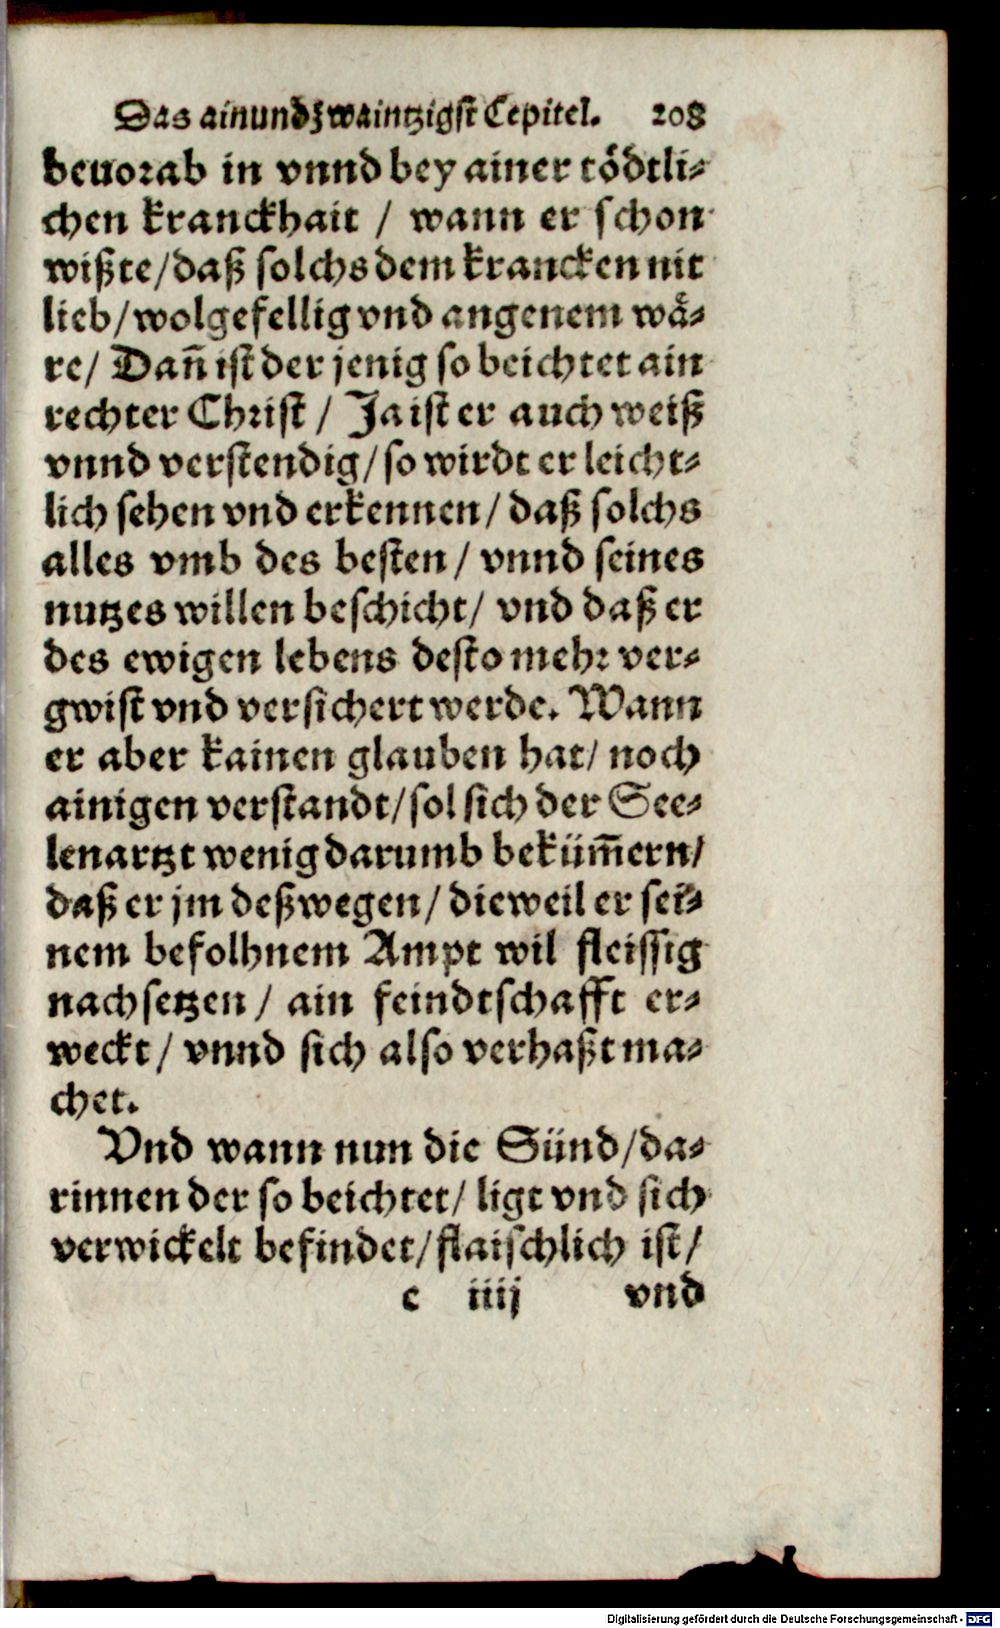 Das ainundzwaintzigst Cepitel. 208
beuorab in vnnd bey ainer tödtli-
chen kranckhait / wann er schon
wißte/daß solchs dem krancken nit
lieb/wolgefellig vnd angenem wä-
re/ Dañ ist der jenig so beichtet ain
rechter Christ / Ja ist er auch weiß
vnnd verstendig/so wirdt er leicht-
lich sehen vnd erkennen/daß solchs
alles vmb des besten/ vnnd seines
nutzes willen beschicht/ vnd daß er
des ewigen lebens desto mehr ver-
gwist vnd versichert werde. Wann
er aber kainen glauben hat/ noch
ainigen verstandt/sol sich der See-
lenartzt wenig darumb beküm̃ern/
daß er jm deßwegen/dieweil er sei-
nem befolhnem Ampt wil fleissig
nachsetzen/ ain feindtschafft er-
weckt/ vnnd sich also verhaßt ma-
chet.
Vnd wann nun die Sünd/da-
rinnen der so beichtet/ligt vnd sich
verwickelt befindet/flaischlich ist/
c iiij vnd
Digitalisierung gefördert durch die Deutsche Forschungsgemeinschaft - DFG